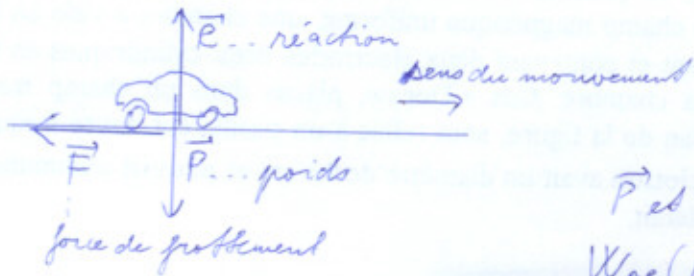 R⃗... réaction
sens du mouvement
F⃗
P⃗
poids
force de frottement
P⃗ et